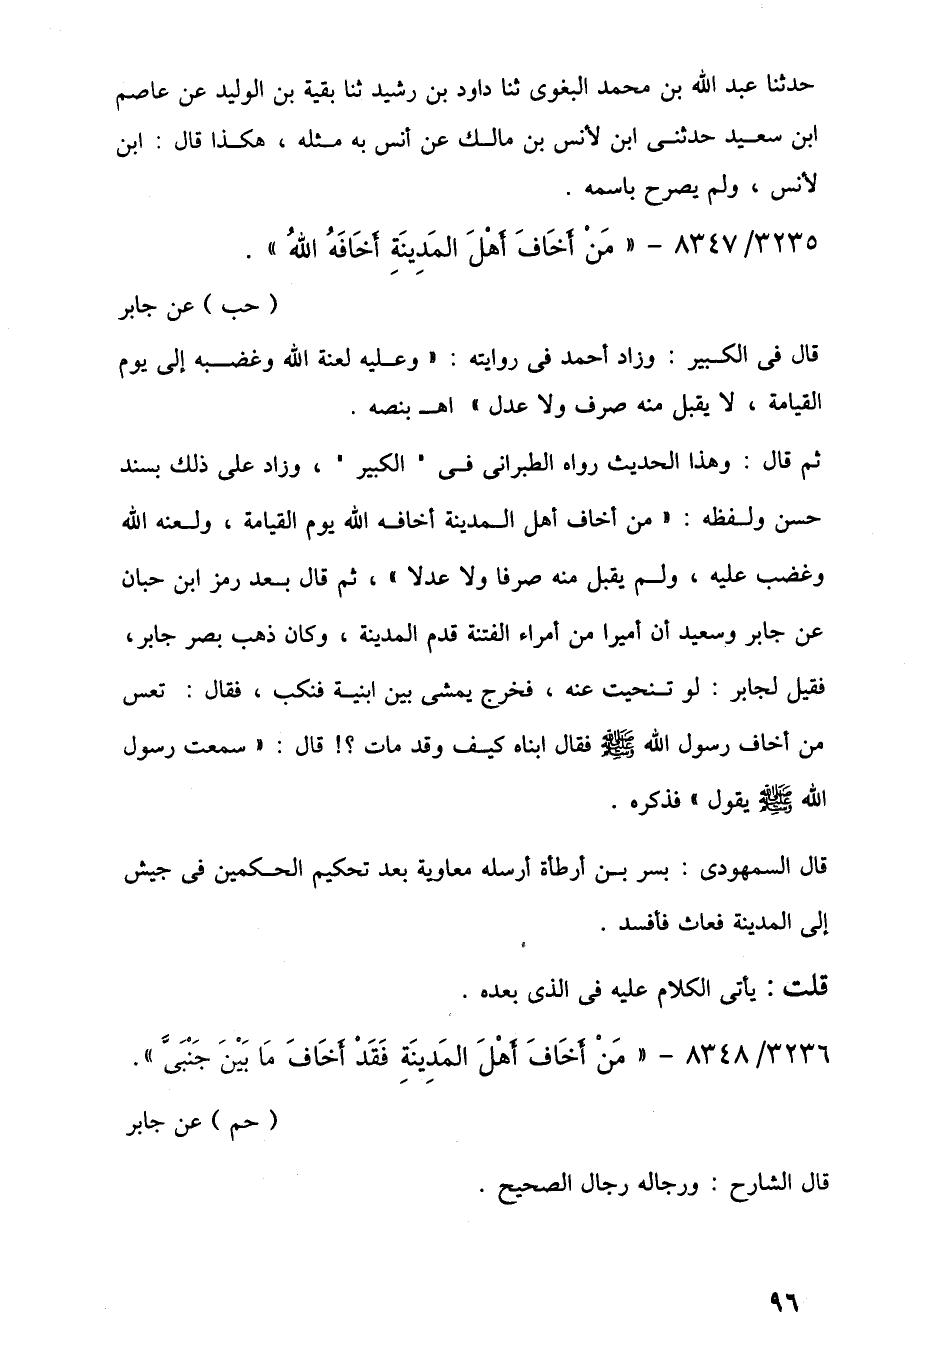 حدثنا عبد الله بن محمد البغوى ثنا داود بن رشيد ثنا بقية بن الوليد عن عاصم
ابن سعيد حدثنى ابن لأنس بن مالك عن أنس به مثله ، هكذا قال : ابن
لأنس ، ولم يصرح باسمه .
٨٣٤٧/٣٢٣٥ – « مَنْ أَخَافَ أَهْلَ المَدِينَةِ أَخَافَهُ اللهُ » .
( حب ) عن جابر
قال فى الكبير : وزاد أحمد فى روايته : « وعليه لعنة الله وغضبه إلى يوم
القيامة ، لا يقبل منه صرف ولا عدل » اهـ بنصه .
ثم قال : وهذا الحديث رواه الطبرانى فى " الكبير " ، وزاد على ذلك بسند
حسن ولفظه : « من أخاف أهل المدينة أخافه الله يوم القيامة ، ولعنه الله
وغضب عليه ، ولم يقبل منه صرفا ولا عدلا » ، ثم قال بعد رمز ابن حبان
عن جابر وسعيد أن أميرا من أمراء الفتنة قدم المدينة ، وكان ذهب بصر جابر،
فقيل لجابر : لو تنحيت عنه ، فخرج يمشى بين ابنية فنكب ، فقال : تعس
من أخاف رسول الله ﷺ فقال ابناه كيف وقد مات ؟! قال : « سمعت رسول
الله ﷺ يقول » فذكره .
قال السمهودى : بسر بن أرطأة أرسله معاوية بعد تحكيم الحكمين فى جيش
إلى المدينة فعاث فأفسد .
قلت : يأتى الكلام عليه فى الذى بعده .
٨٣٤٨/٣٢٣٦ – « مَنْ أَخَافَ أَهْلَ المَدِينَةِ فَقَدْ أَخَافَ مَا بَيْنَ جَنْبَىَّ ».
( حم ) عن جابر
قال الشارح : ورجاله رجال الصحيح .
٩٦